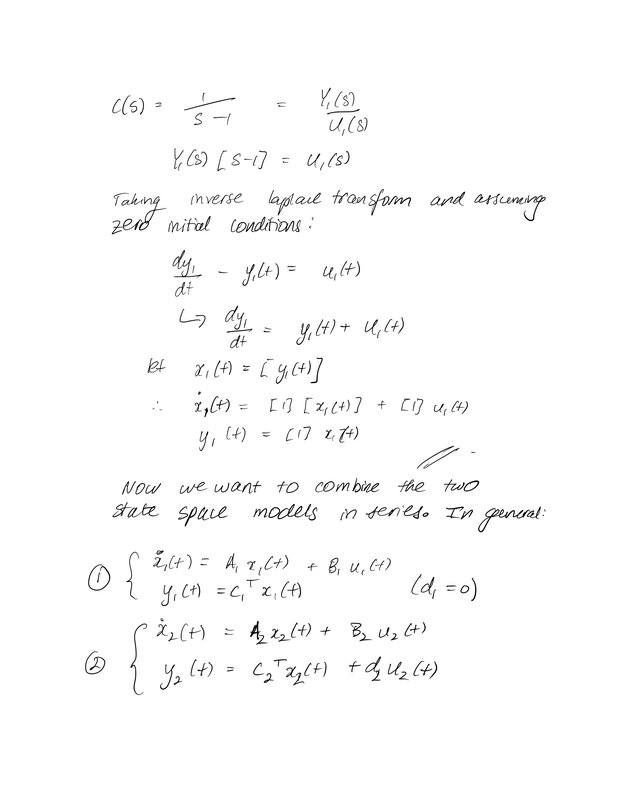 C(s) = 1/(s-1) = Y₁(s)/U₁(s)
Y₁(s) [s-1] = U₁(s)
Taking inverse laplace transform and assuming
zero initial conditions:
dy₁/dt - y₁(t) = u₁(t)
↳ dy₁/dt = y₁(t) + u₁(t)
let x₁(t) = [y₁(t)]
∴ ẋ₁(t) = [1] [x₁(t)] + [1] u₁(t)
y₁(t) = [1] x₁(t)
Now we want to combine the two
state space models in series. In general:
① { ẋ₁(t) = A₁ x₁(t) + B₁ u₁(t)
y₁(t) = C₁ᵀ x₁(t) (d₁ = 0)
② { ẋ₂(t) = A₂ x₂(t) + B₂ u₂(t)
y₂(t) = C₂ᵀ x₂(t) + d₂ u₂(t)